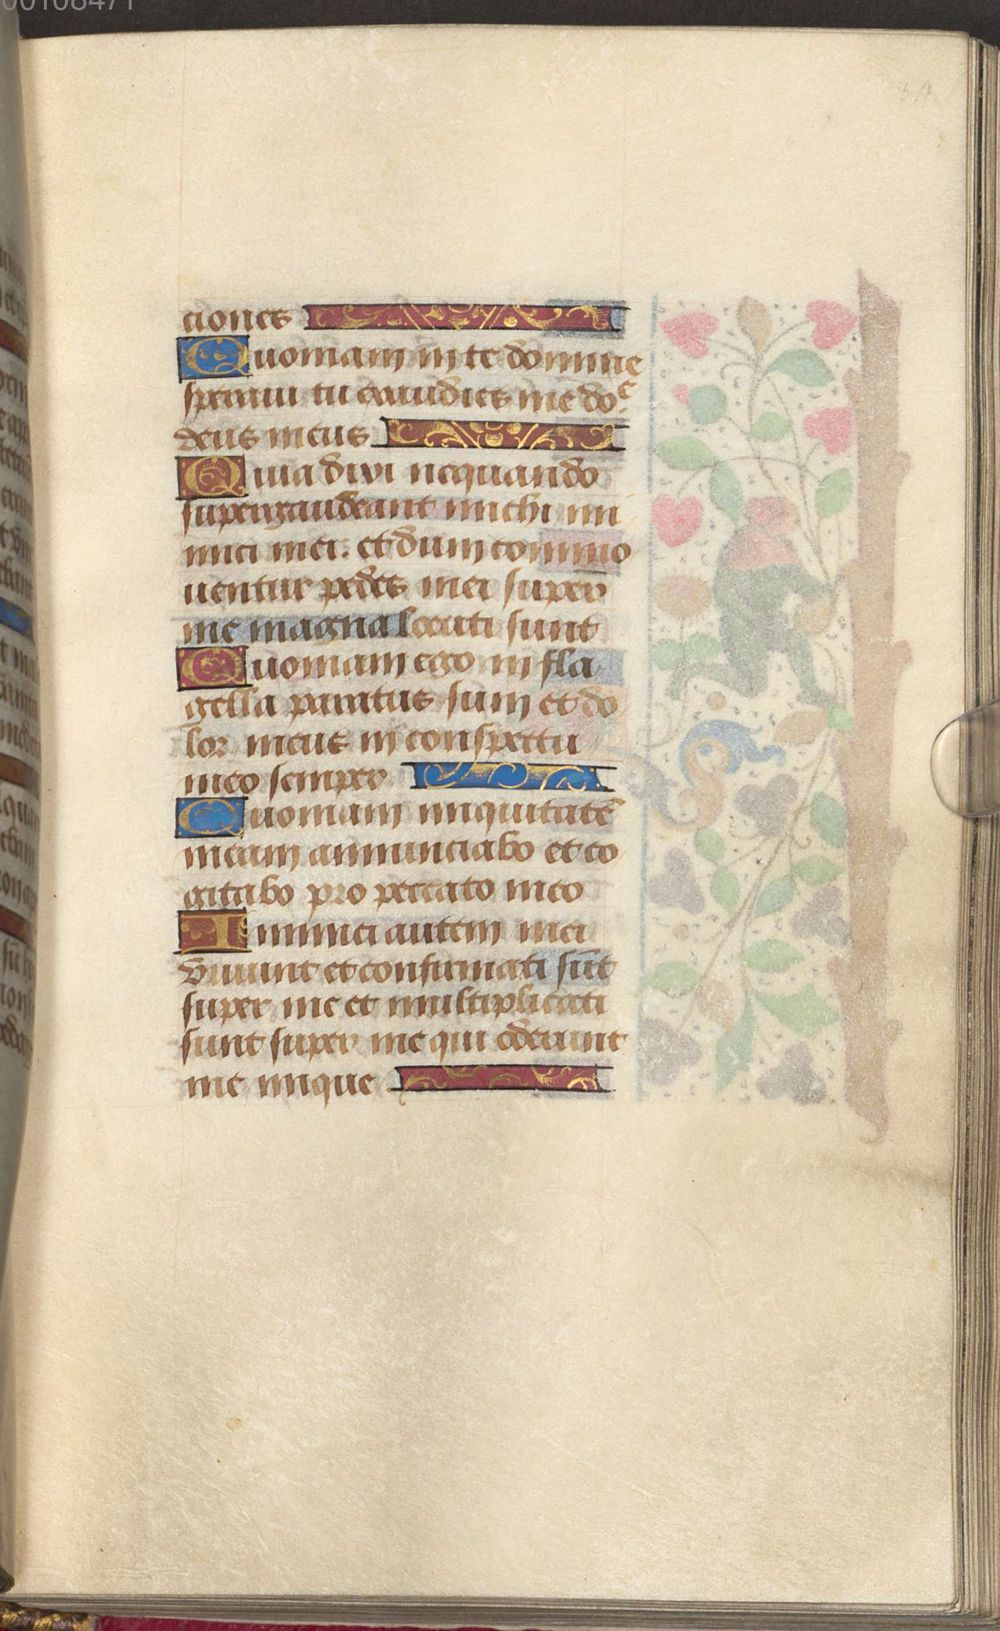 ciones
Quoniam in te domine
speraui tu exaudies me do͛
deus meus
Quia dixi nequando
supergaudeant michi ini
mici mei. et dum commo
uentur pedes mei super
me magna locuti sunt
Quoniam ego in fla
gella paratus sum et do
lor meus in conspectu
meo semper
Quoniam iniquitatē
meam annunciabo et co
gitabo pro peccato meo
Inimici autem mei
viuunt et confirmati sūt
super me et multiplicati
sunt super me qui oderunt
me inique